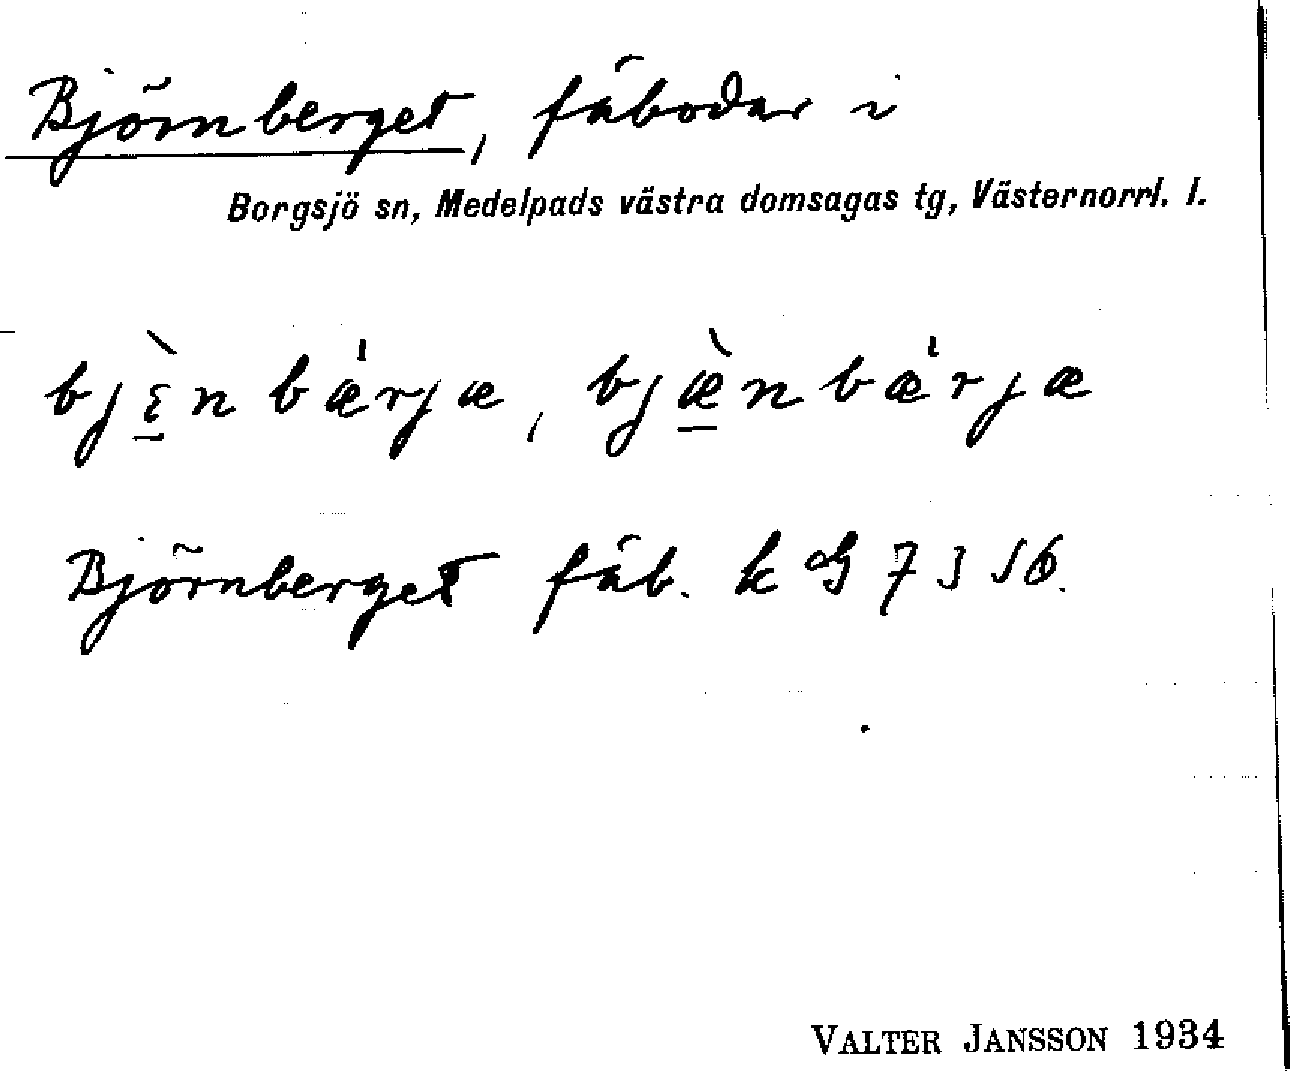 Björnberget, fäbodar i
Borgsjö sn, Medelpads västra domsagas tg, Västernorrl. l.
bjɛ̠̀nbæ̍rjæ, bjæ̠̀nbæ̍rjæ
Björnberget fäb. k G 73 56.
VALTER JANSSON 1934